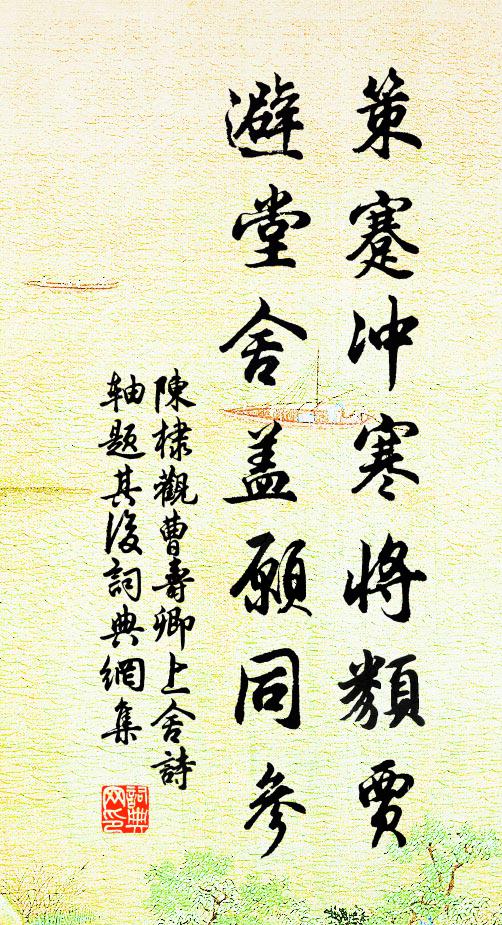 策蹇冲寒将类贾
避堂舍盖愿同参
陳棣觀曹壽卿上舍詩
軸題其後詞典網集
詞典网印